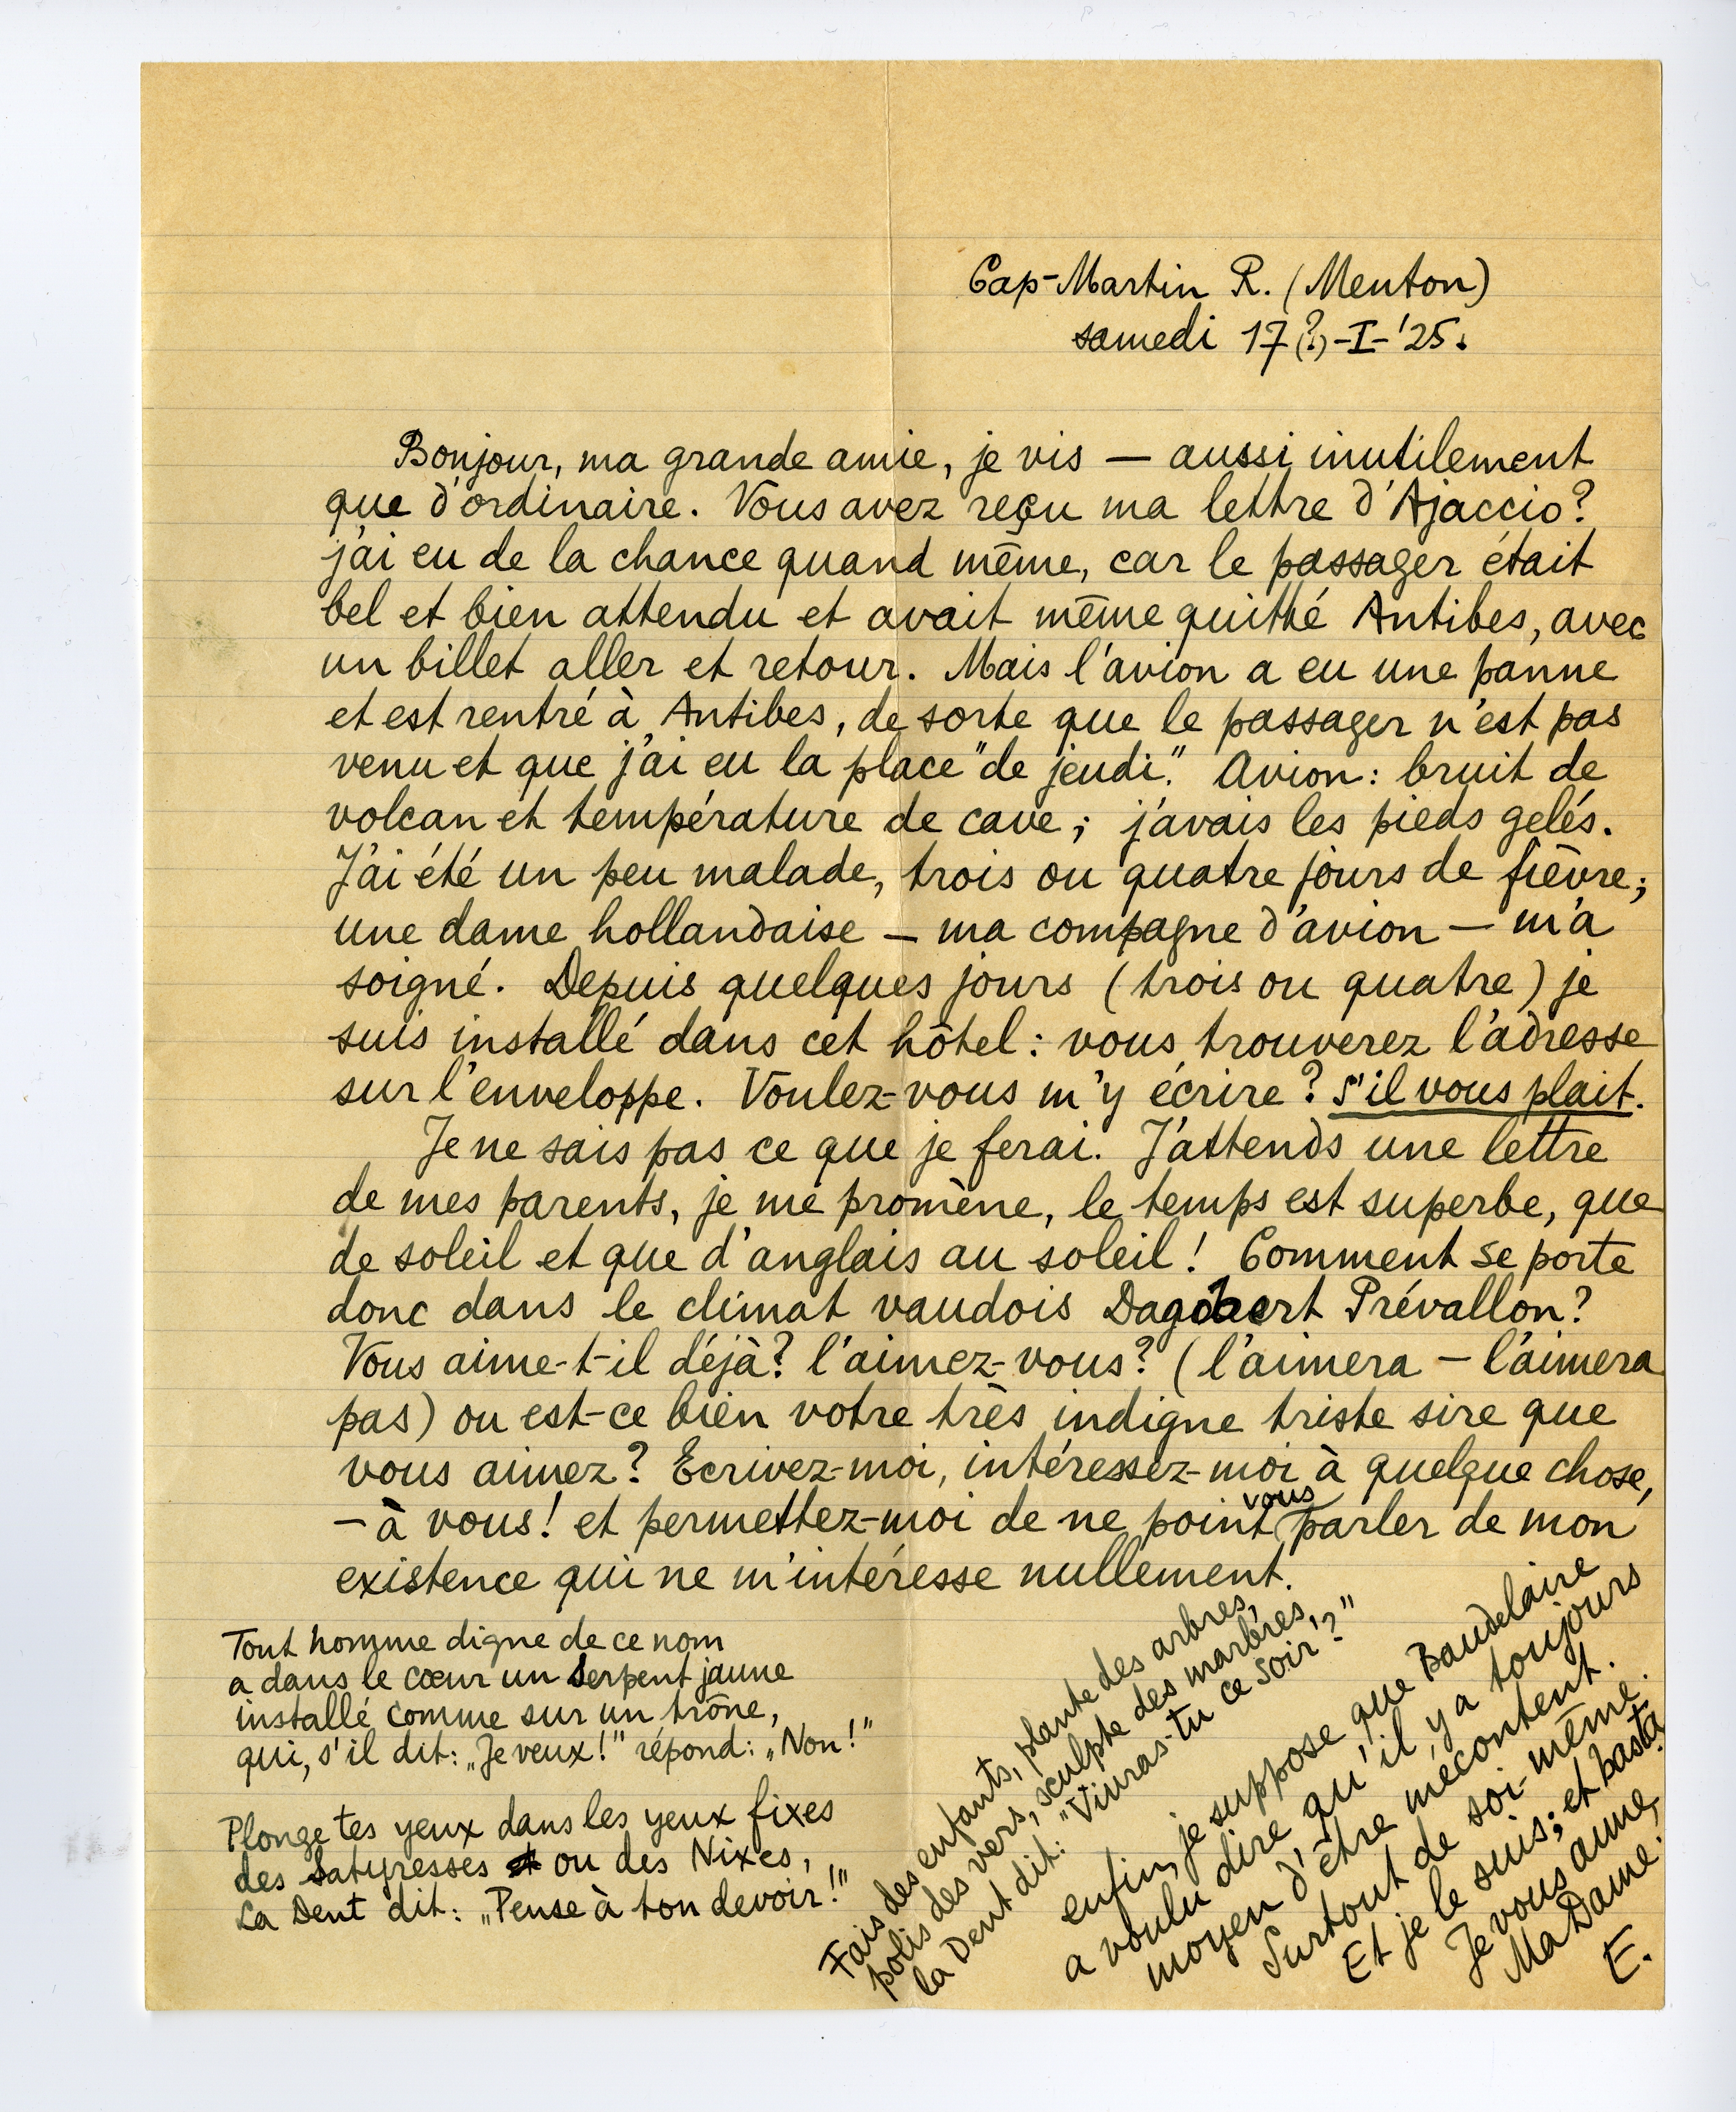 Cap-Martin R. (Menton)
samedi 17(?)-I-'25.
Bonjour, ma grande amie, je vis — aussi inutilement
que d'ordinaire. Vous avez reçu ma lettre d'Ajaccio?
j'ai eu de la chance quand même, car le passager était
bel et bien attendu et avait même quitté Antibes, avec
un billet aller et retour. Mais l'avion a eu une panne
et est rentré à Antibes, de sorte que le passager n'est pas
venu et que j'ai eu la place "de jeudi". Avion: bruit de
volcan et température de cave; j'avais les pieds gelés.
J'ai été un peu malade, trois ou quatre jours de fièvre;
une dame hollandaise — ma compagne d'avion — m'a
soigné. Depuis quelques jours (trois ou quatre) je
suis installé dans cet hôtel: vous trouverez l'adresse
sur l'enveloppe. Voulez-vous m'y écrire? s'il vous plait.
Je ne sais pas ce que je ferai. J'attends une lettre
de mes parents, je me promène, le temps est superbe, que
de soleil et que d'anglais au soleil! Comment se porte
donc dans le climat vaudois Dagobert Prévallon?
Vous aime-t-il déjà? l'aimez-vous? (l'aimera — l'aimera
pas) ou est-ce bien votre très indigne triste sire que
vous aimez? Ecrivez-moi, intéressez-moi à quelque chose,
— à vous! et permettez-moi de ne point vous parler de mon
existence qui ne m'intéresse nullement.
Tout homme digne de ce nom
a dans le cœur un Serpent jaune
installé comme sur un trône,
qui, s'il dit: „Je veux!" répond: „Non!"
Plonge tes yeux dans les yeux fixes
des Satyresses ou des Nixes,
La Dent dit: „Pense à ton devoir!"
Fais des enfants, plante des arbres,
polis des vers, sculpte des marbres,
la Dent dit: "Vivras-tu ce soir?"
enfin, je suppose que Baudelaire
a voulu dire qu'il y a toujours
moyen d'être mécontent.
Surtout de soi-même.
Et je le suis; et basta.
Je vous aime,
Ma Dame.
E.